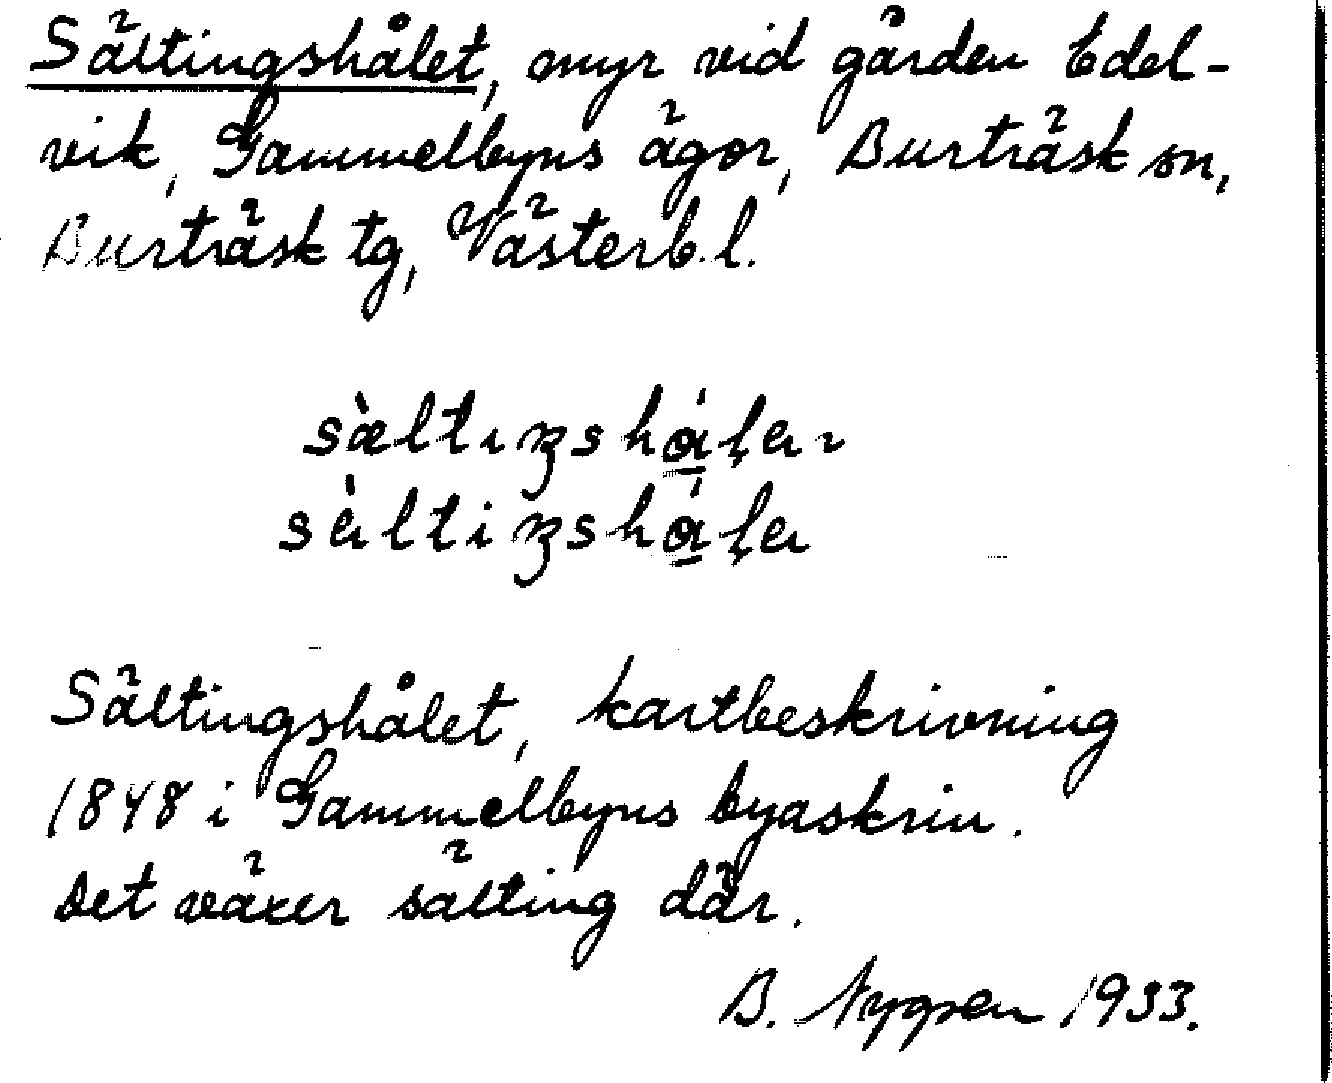 Sältingshålet, myr vid gården Edel-
vik, Gammelbyns ägor, Burträsk sn,
Burträsk tg, Västerb. l.
Sältingshålet, kartbeskrivning
1848 i Gammelbyns byaskrin.
Det växer sälting där.
B. Nygren 1933.